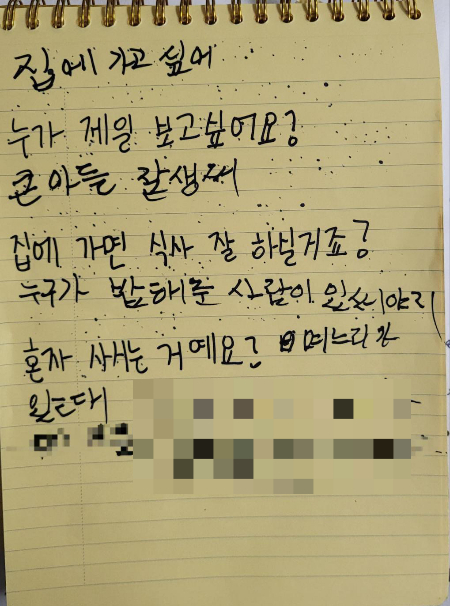 집에 가고 싶어
누가 제일 보고싶어요?
큰아들
집에 가면 식사 잘 하실거죠?
누구가 밥해준 사람이
혼자 사시는 거예요? 며느리가